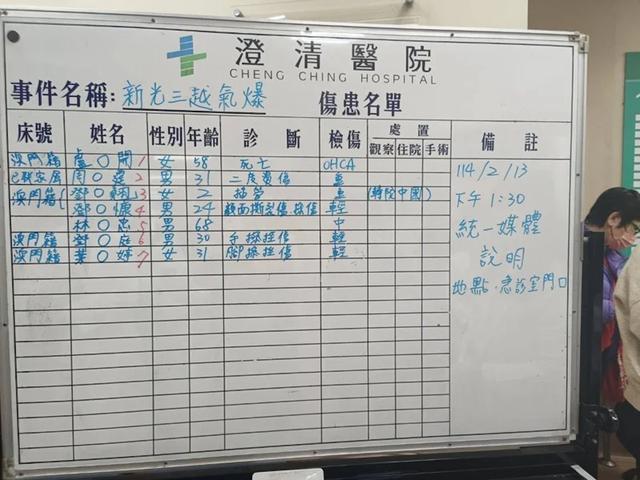 澄清醫院
CHENG CHING HOSPITAL
事件名稱: 新光三越氣爆 傷患名單
床號 姓名 性別 年齡 診斷 檢傷 處置 備註
觀察 住院 手術
澳門籍 盧〇開 1 女 58 死亡 OHCA
周〇 2 男 31 二度燙傷 重
澳門籍 鄧〇 3 女 2 插管 重 (轉院中國)
鄧〇 4 男 24 輕
林〇忠 5 男 68 中
澳門籍 鄧〇庭 6 男 30 手擦挫傷 輕
澳門籍 葉〇婷 7 女 31 腳擦挫傷 輕
114/2/13
下午1:30
統一媒體
說明
地點.急診室門口